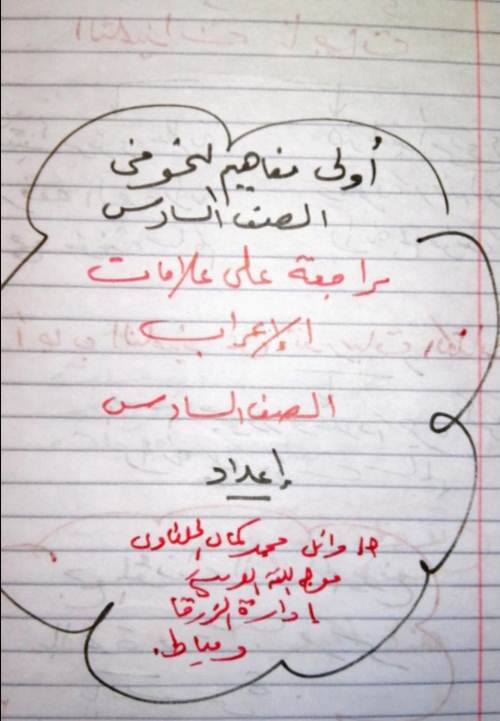 أولى مفاهيم النحو فى
الصف السادس
مراجعة على علامات
الإعراب
الصف السادس
إعداد
أ/ وائل محمد كمال الحلفاوى
موجه اللغة العربية
إدارة الزرقا
دمياط.